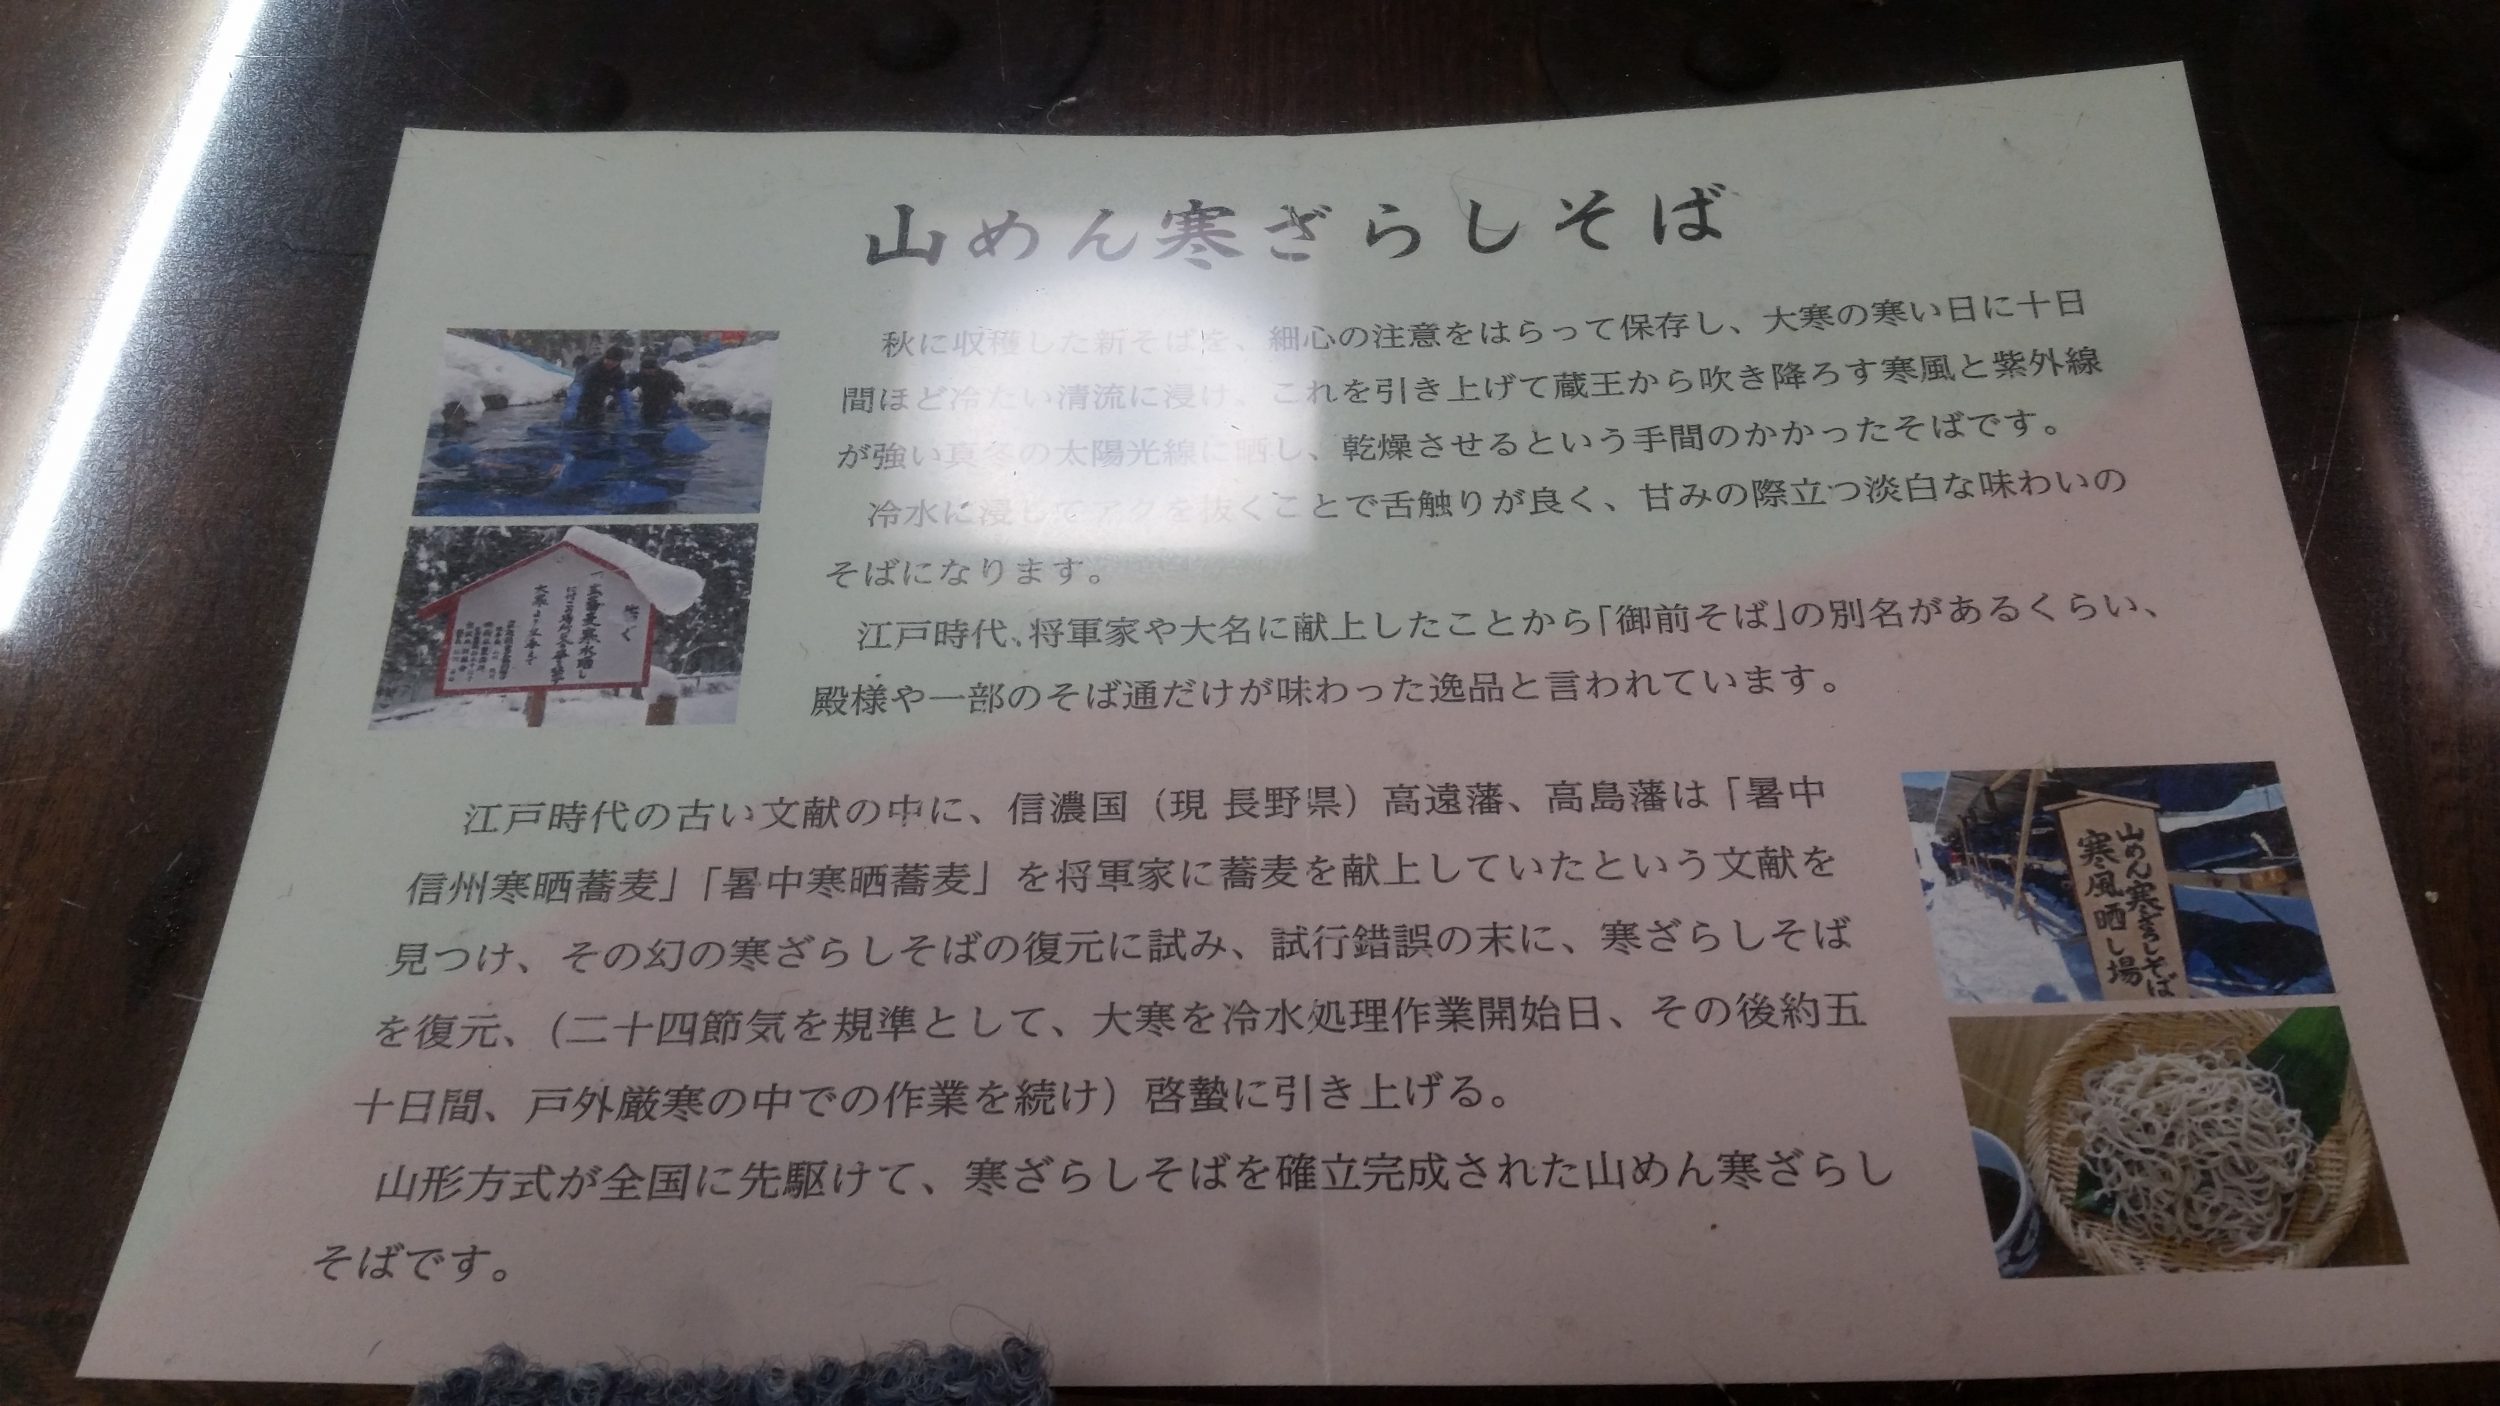 山めん寒ざらしそば
秋に収穫した新そばを、細心の注意をはらって保存し、大寒の寒い日に十日
間ほど冷たい清流に浸け、これを引き上げて蔵王から吹き降ろす寒風と紫外線
が強い真冬の太陽光線に晒し、乾燥させるという手間のかかったそばです。
冷水に浸してアクを抜くことで舌触りが良く、甘みの際立つ淡白な味わいの
そばになります。
江戸時代、将軍家や大名に献上したことから「御前そば」の別名があるくらい、
殿様や一部のそば通だけが味わった逸品と言われています。
江戸時代の古い文献の中に、信濃国（現 長野県）高遠藩、高島藩は「暑中
信州寒晒蕎麦」「暑中寒晒蕎麦」を将軍家に蕎麦を献上していたという文献を
見つけ、その幻の寒ざらしそばの復元に試み、試行錯誤の末に、寒ざらしそば
を復元、(二十四節気を規準として、大寒を冷水処理作業開始日、その後約五
十日間、戸外厳寒の中での作業を続け）啓蟄に引き上げる。
山形方式が全国に先駆けて、寒ざらしそばを確立完成された山めん寒ざらし
そばです。
山めん寒ざらしそば
寒風晒し場
玄蕎麦寒水晒し